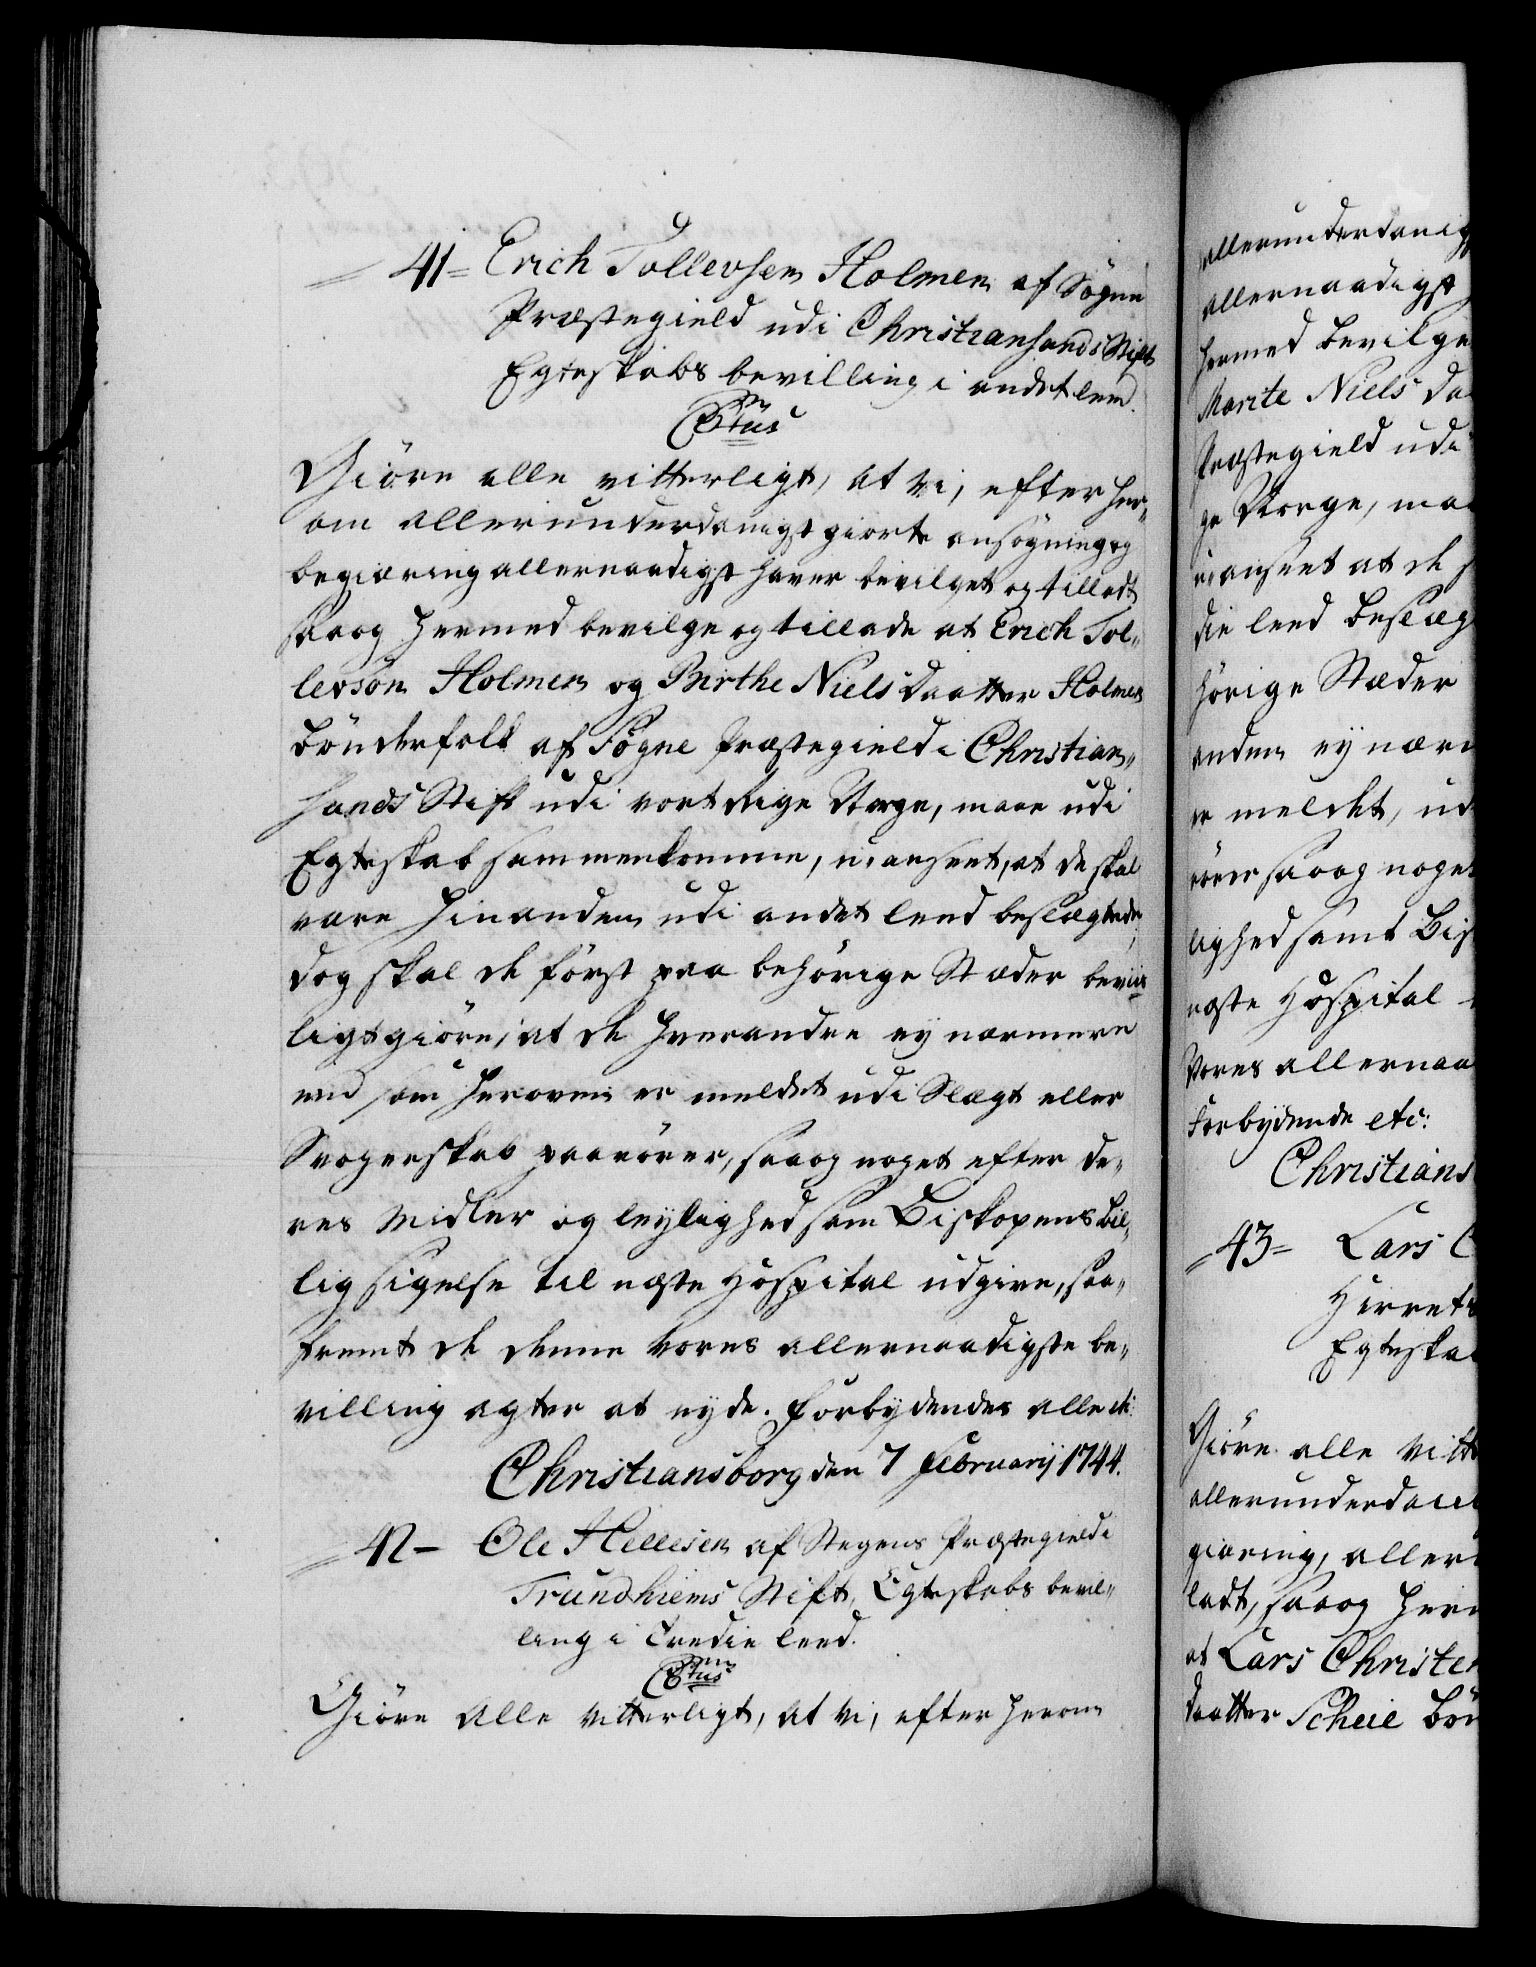 41= Erich Tollevsen Holmen af Sögne
Præstegield udi Christiansands Stift
Egteskabs bevilling i andet leed.
Ctus
Giöre alle vitterligt, at vi, efter her¬
om allerunderdanigst giorte ansögning og
begiæring allernaadigst haver bevilget og tilladt
saaog hermed bevilge og tillade at Erich Tol¬
levsön Holmen og Birthe Niels Daatter Holmen
bönderfolk af Sögne Præstegield i Christian¬
sands Stift udi vort Rige Norge, maae udi
Egteskab sammenkomme, u-anseet, at de skal
være hinanden udi andet leed beslægtede,
dog skal de först paa behörige Stæder beviis¬
ligtgiöre, at de hverandre ey nærmere
end som herovenn er meldet udi Slægt eller
Svogerskab paarörer, saaog noget efter de¬
res Midler og leylighed som Biskopens bil¬
lig sigelse til næste Hospital udgive, saa¬
fremt de denne vores allernaadigste be¬
villing agter at nyde. Forbydendes alle etc:
Christiansborg den 7 Februarij 1744.
42- Ole Hellesen af Stegens Præstegield i
Trundhiems Stift, Egteskabs bevil¬
ling i Tredie leed.
Ctus
Giöre alle vitterligt, at vi, efter herom
allerunderdanig
allernaadigst
hermed bevilge
Marite Niels Da
Præstegield udi
ge Norge, maa
uanseet at de s
die leed beslæg
hörige Stæder
anden ey nærm
er meldet, ud
rörer saaog noget
lighed samt Bis
næste Hospital
Vores allernaa
Forbydende etc:
Christians
43= Lars C
Hirrets
Egteska
Giöre alle vitt
allerunderdani
giæring, aller
ladt, saaog her
at Lars Christen
Daatter Scheie bön